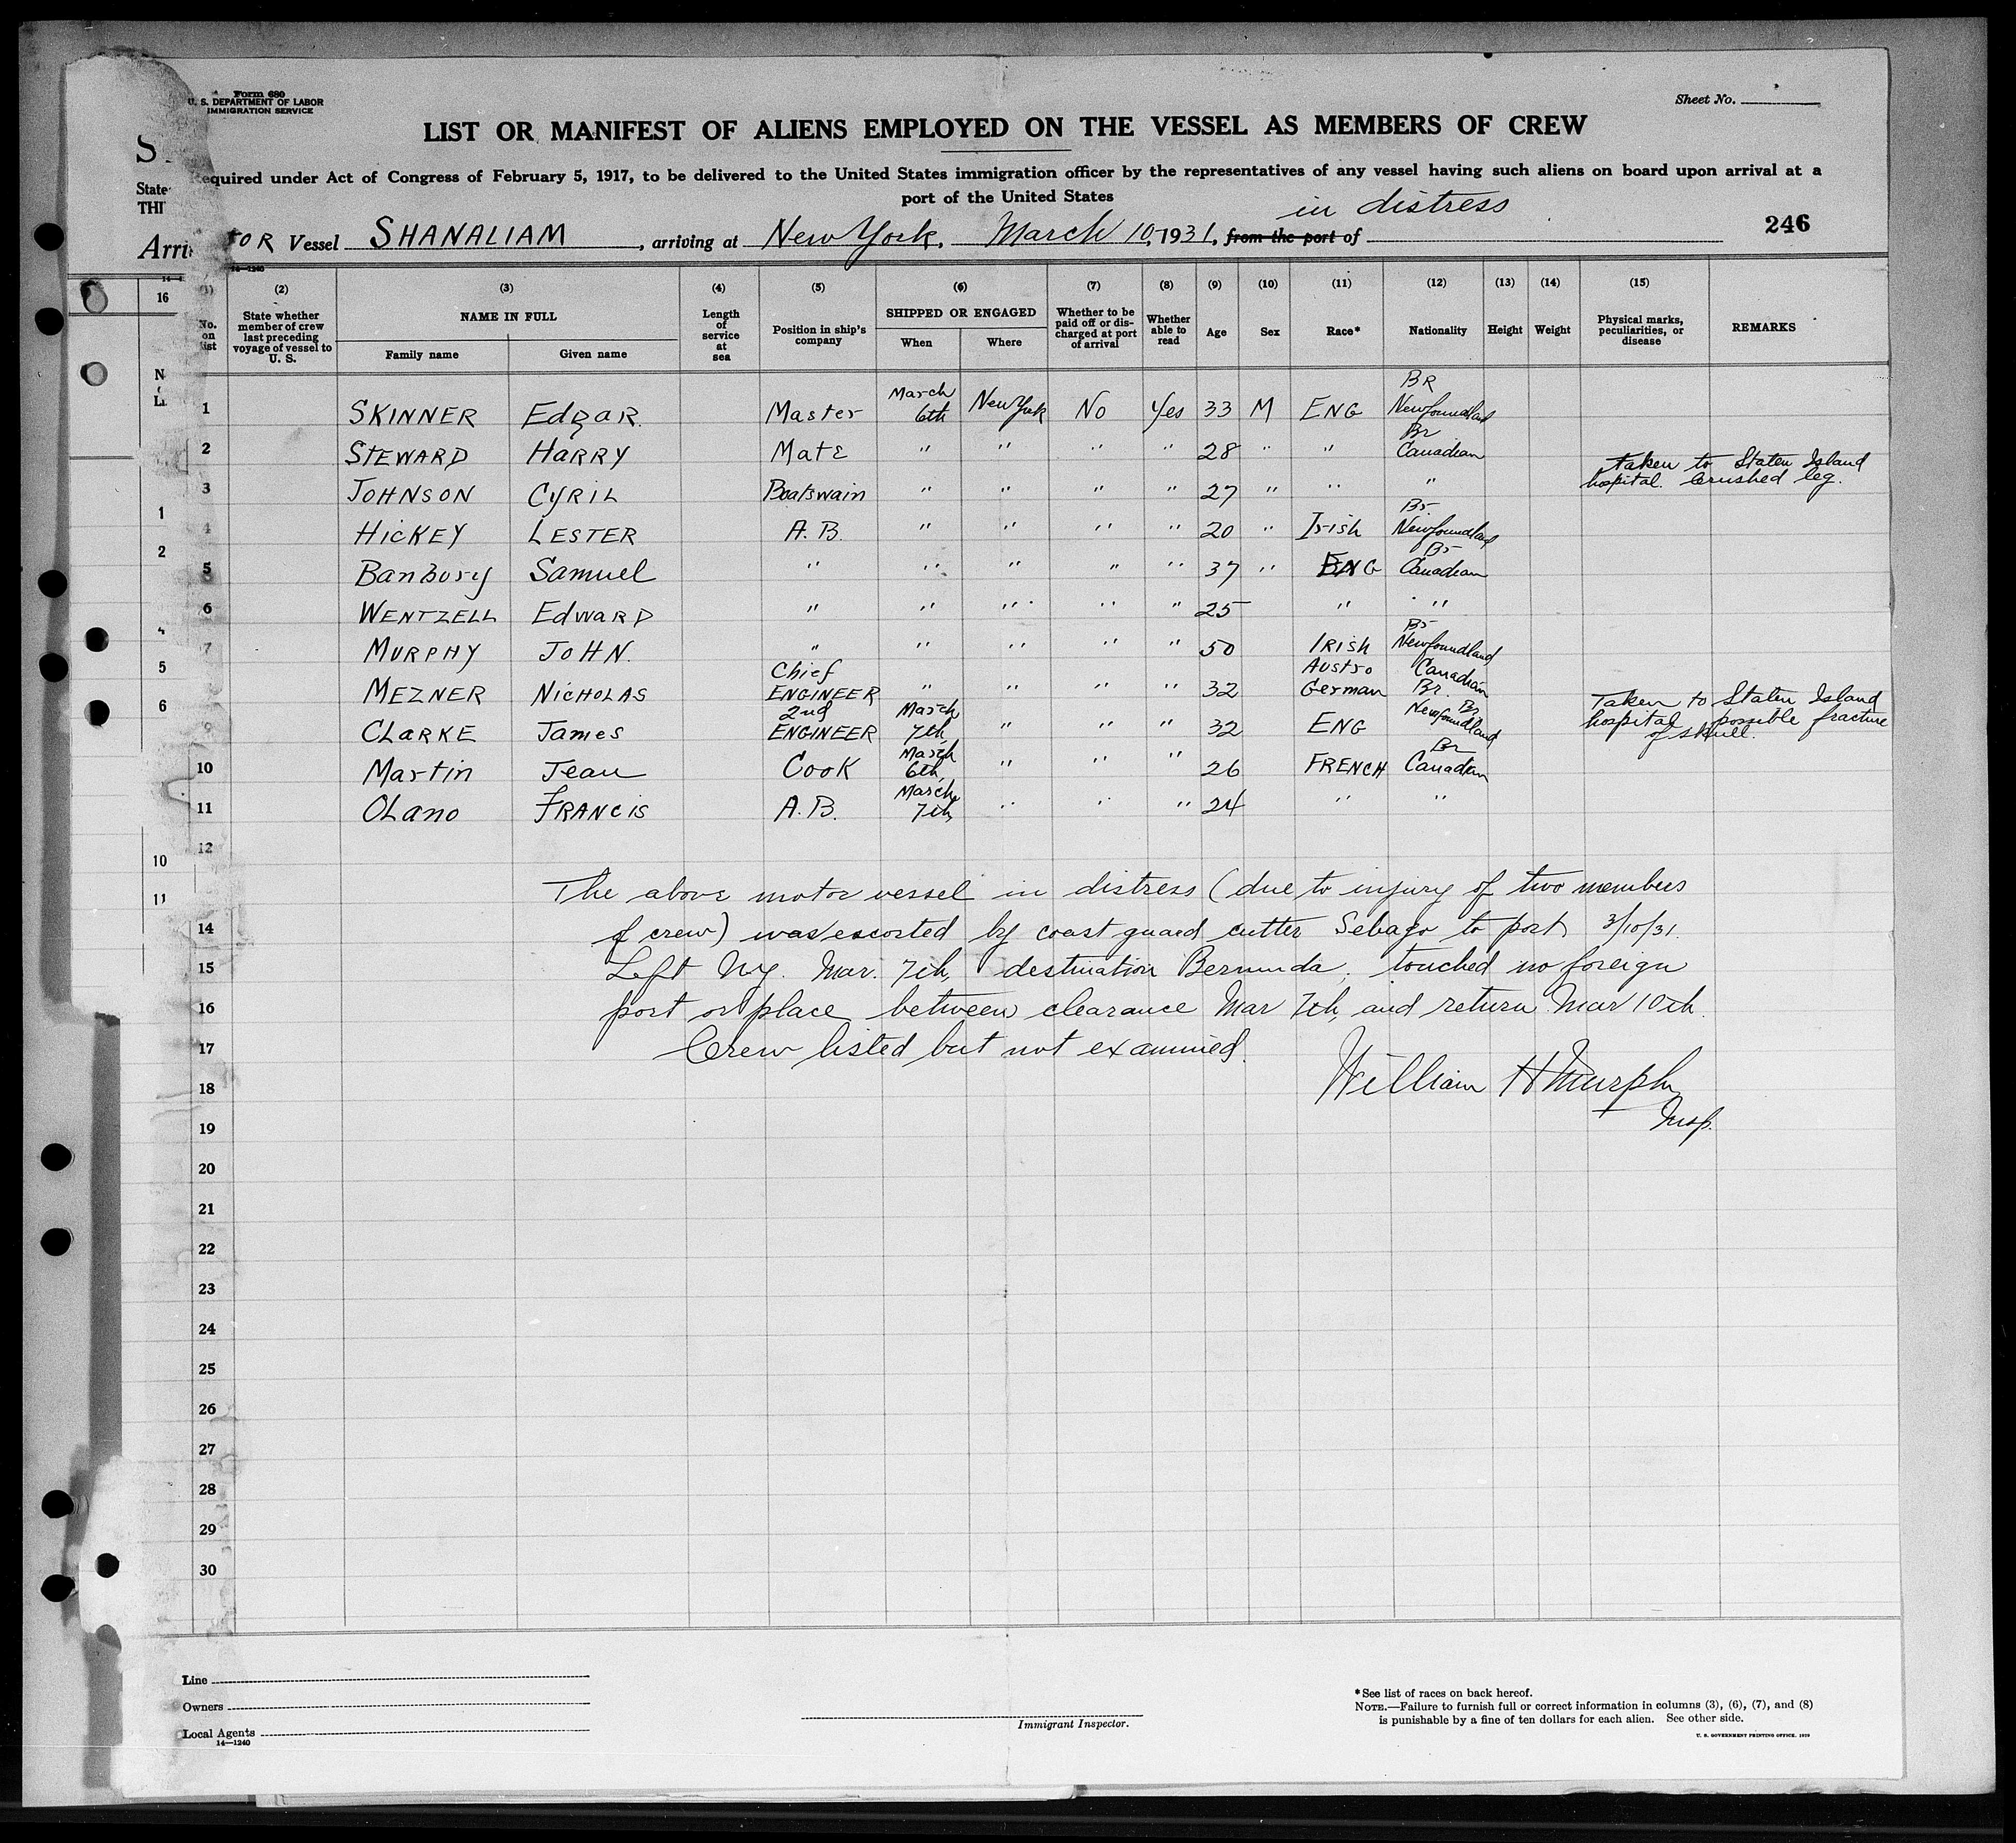 Form 680
U. S. DEPARTMENT OF LABOR
IMMIGRATION SERVICE
Sheet No.
LIST OR MANIFEST OF ALIENS EMPLOYED ON THE VESSEL AS MEMBERS OF CREW
Required under Act of Congress of February 5, 1917, to be delivered to the United States immigration officer by the representatives of any vessel having such aliens on board upon arrival at a
port of the United States
in distress
TOR Vessel SHANALIAM, arriving at New York, March 10, 1931, from the port of
246
State
Arri
14—1240
16
(1) (2) (3) (4) (5) (6) (7) (8) (9) (10) (11) (12) (13) (14) (15)
No. on list
State whether member of crew last preceding voyage of vessel to U. S.
NAME IN FULL
Family name Given name
Length of service at sea
Position in ship's company
SHIPPED OR ENGAGED
When Where
Whether to be paid off or discharged at port of arrival
Whether able to read
Age
Sex
Race*
Nationality
Height
Weight
Physical marks, peculiarities, or disease
REMARKS
1 SKINNER Edgar. Master March 6th New York No Yes 33 M ENG BR Newfoundland
2 STEWARD HARRY MatE " " " " 28 " " Br Canadian
3 JOHNSON CYRIL Boatswain " " " " 27 " " " Taken to Staten Island hospital. Crushed leg.
4 HiCKEY LESTER A.B. " " " " 20 " Irish Br Newfoundland
5 Banbury Samuel " " " " " 37 " ENG Br Canadian
6 WENTZELL EDWARD " " " " " 25 " "
7 MURPHY JOHN. " " " " " 50 IRISH Br Newfoundland
MEZNER NICHOLAS Chief ENGINEER " " " " 32 Austro German Canadian Br.
9 CLARKE James 2nd ENGINEER March 7th, " " " 32 ENG Br Newfoundland Taken to Staten Island hospital possible fracture of skull.
10 Martin Jean Cook March 6th, " " " 26 FRENCH Br Canadian
11 OLano FRANCIS A.B. March 7th, " " " 24 " "
12
The above motor vessel in distress (due to injury of two members
14 of crew) was escorted by coast guard cutter Sebago to port 3/10/31.
15 Left N.Y. Mar. 7th, destination Bermuda, touched no foreign
16 port or place between clearance Mar 7th, and return Mar 10th.
17 Crew listed but not examined.
18 William H Murphy
19 Insp.
20
21
22
23
24
25
26
27
28
29
30
Line
Owners
Local Agents
14—1240
Immigrant Inspector.
*See list of races on back hereof.
NOTE.—Failure to furnish full or correct information in columns (3), (6), (7), and (8)
is punishable by a fine of ten dollars for each alien. See other side.
U. S. GOVERNMENT PRINTING OFFICE. 1929